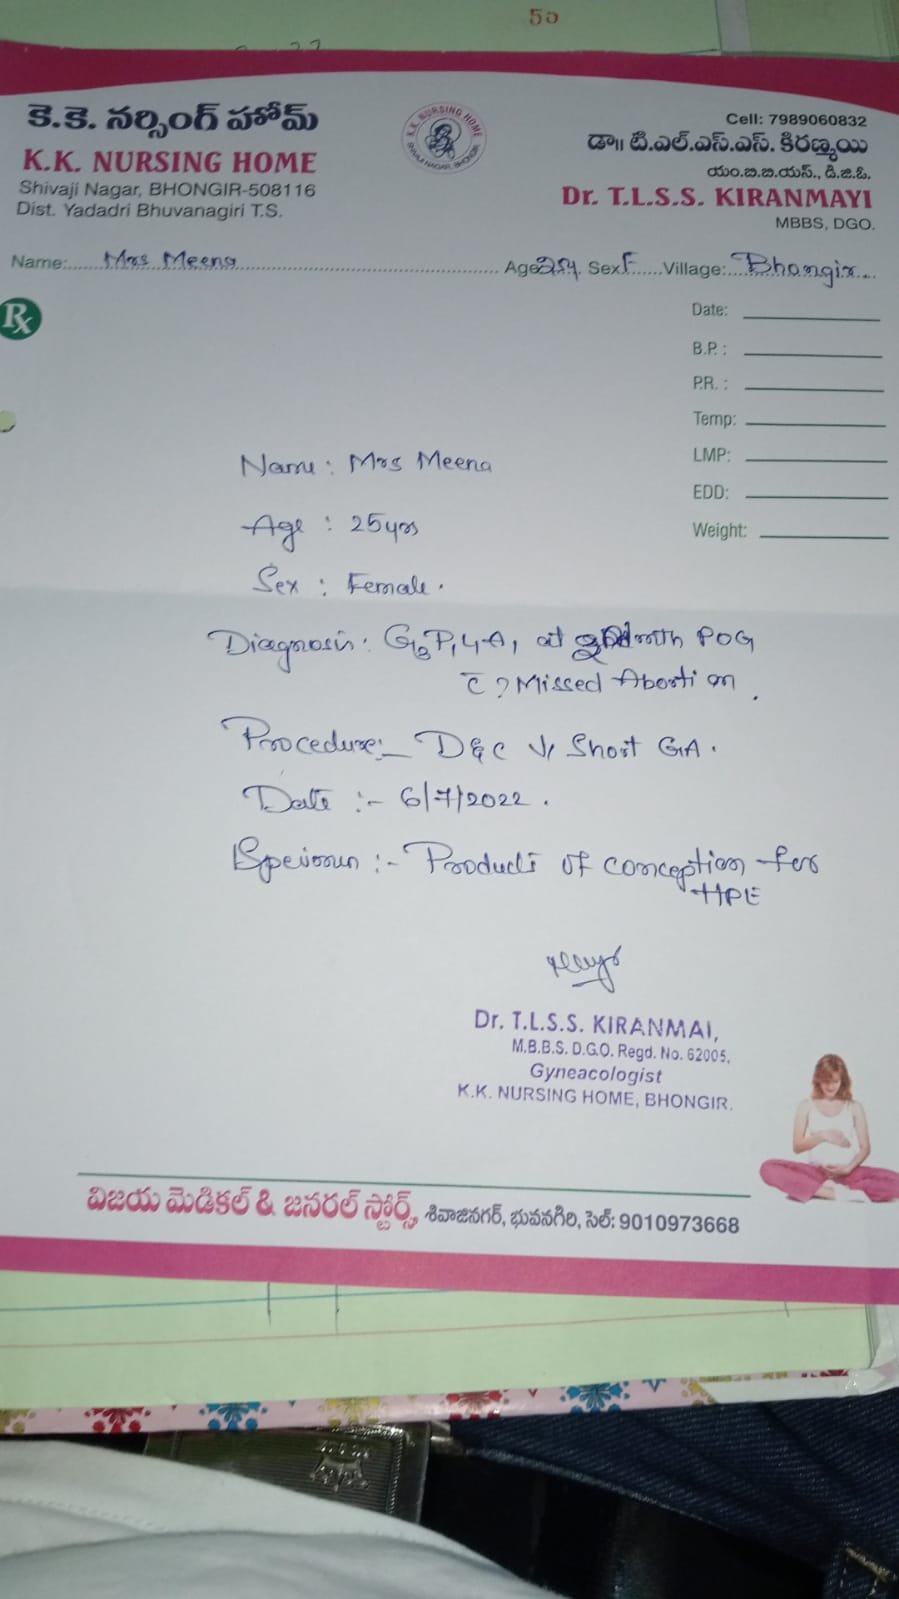 50
కె.కె. నర్సింగ్ హోమ్
K.K. NURSING HOME
Shivaji Nagar, BHONGIR-508116
Dist. Yadadri Bhuvanagiri T.S.
K.K. NURSING HOME
SHIVAJI NAGAR, BHONGIR
Cell: 7989060832
డా॥ టి.ఎల్.ఎస్.ఎస్. కిరణ్మయి
యం.బి.బి.యస్., డి.జి.ఓ.
Dr. T.L.S.S. KIRANMAYI
MBBS, DGO.
Name: Mrs Meena Age 25y. Sex F Village: Bhongir
Rx
Date:
B.P. :
P.R. :
Temp:
LMP:
EDD:
Weight:
Name : Mrs Meena
Age : 25yrs
Sex : Female.
Diagnosis: at POG
c̄ ? Missed Abortion.
Procedure:- D&C Short GA.
Date :- 6/7/2022.
Specimen :- Products of conception for
HPE
Dr. T.L.S.S. KIRANMAI,
M.B.B.S. D.G.O. Regd. No. 62005,
Gyneacologist
K.K. NURSING HOME, BHONGIR.
విజయ మెడికల్ & జనరల్ స్టోర్స్, శివాజినగర్, భువనగిరి, సెల్: 9010973668